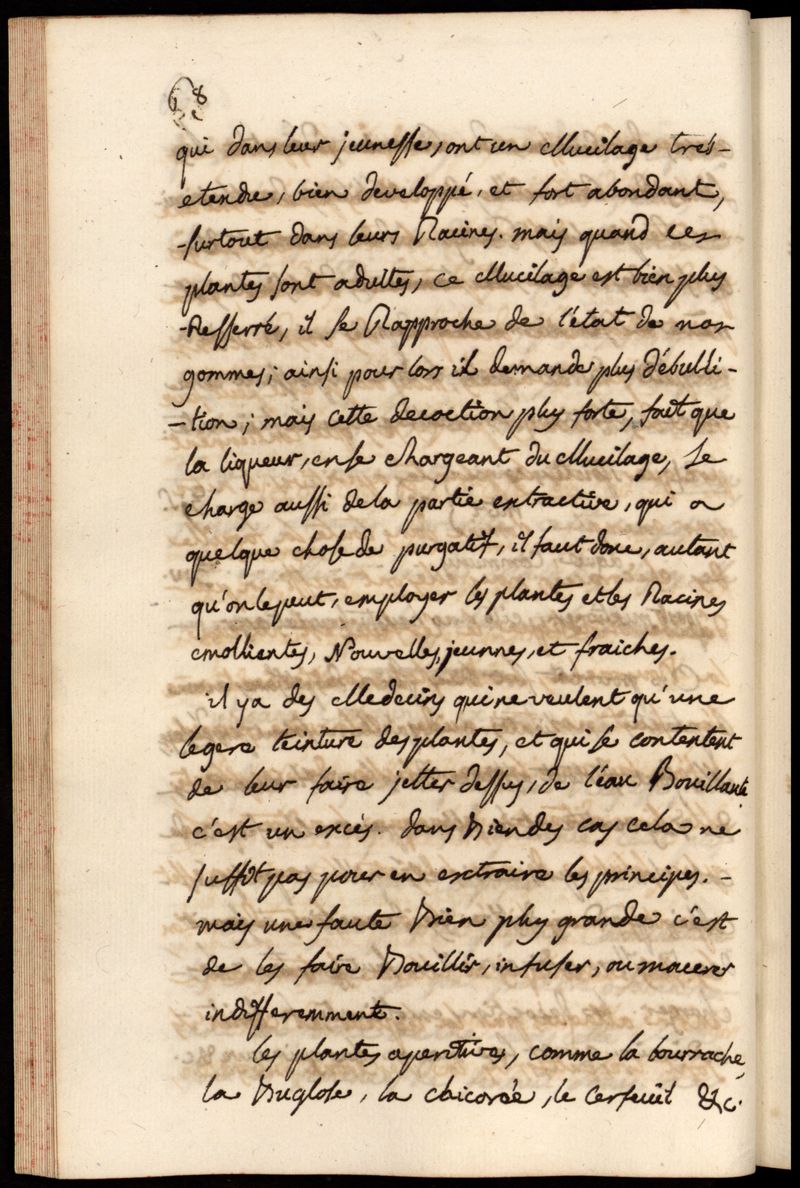 68
qui dans leur jeunesse, ont un Mucilage tres-
etendue, bien developpé, et fort abondant,
-surtout dans leurs Racines. mais quand ces
plantes sont adultes, ce Mucilage est bien plus
-Resserré, il se Rapproche de l'état de nos
gommes; ainsi pour lors il demande plus d'ébulli-
-tion; mais cette decoction plus forte, fait que
la liqueur, en se chargeant du Mucilage, se
charge aussi de la partie extractive, qui a
quelque chose de purgatif, il faut donc, autant
qu'on le peut, employer les plantes et les Racines
emollientes, Nouvelles, jeunnes, et fraiches.
il y a des Medecins qui ne veulent qu'une
legere teinture des plantes, et qui se contentent
de leur faire jetter dessus, de l'eau Bouillante
c'est un excés. dans Bien des cas cela ne
suffit pas pour en extraire les principes. -
mais une faute Bien plus grande c'est
de les faire Bouillir, infuser, ou macerer
indifferemment.
les plantes aperitives, comme la bourrache,
la Buglose, la chicorée, le cerfeuil &c.